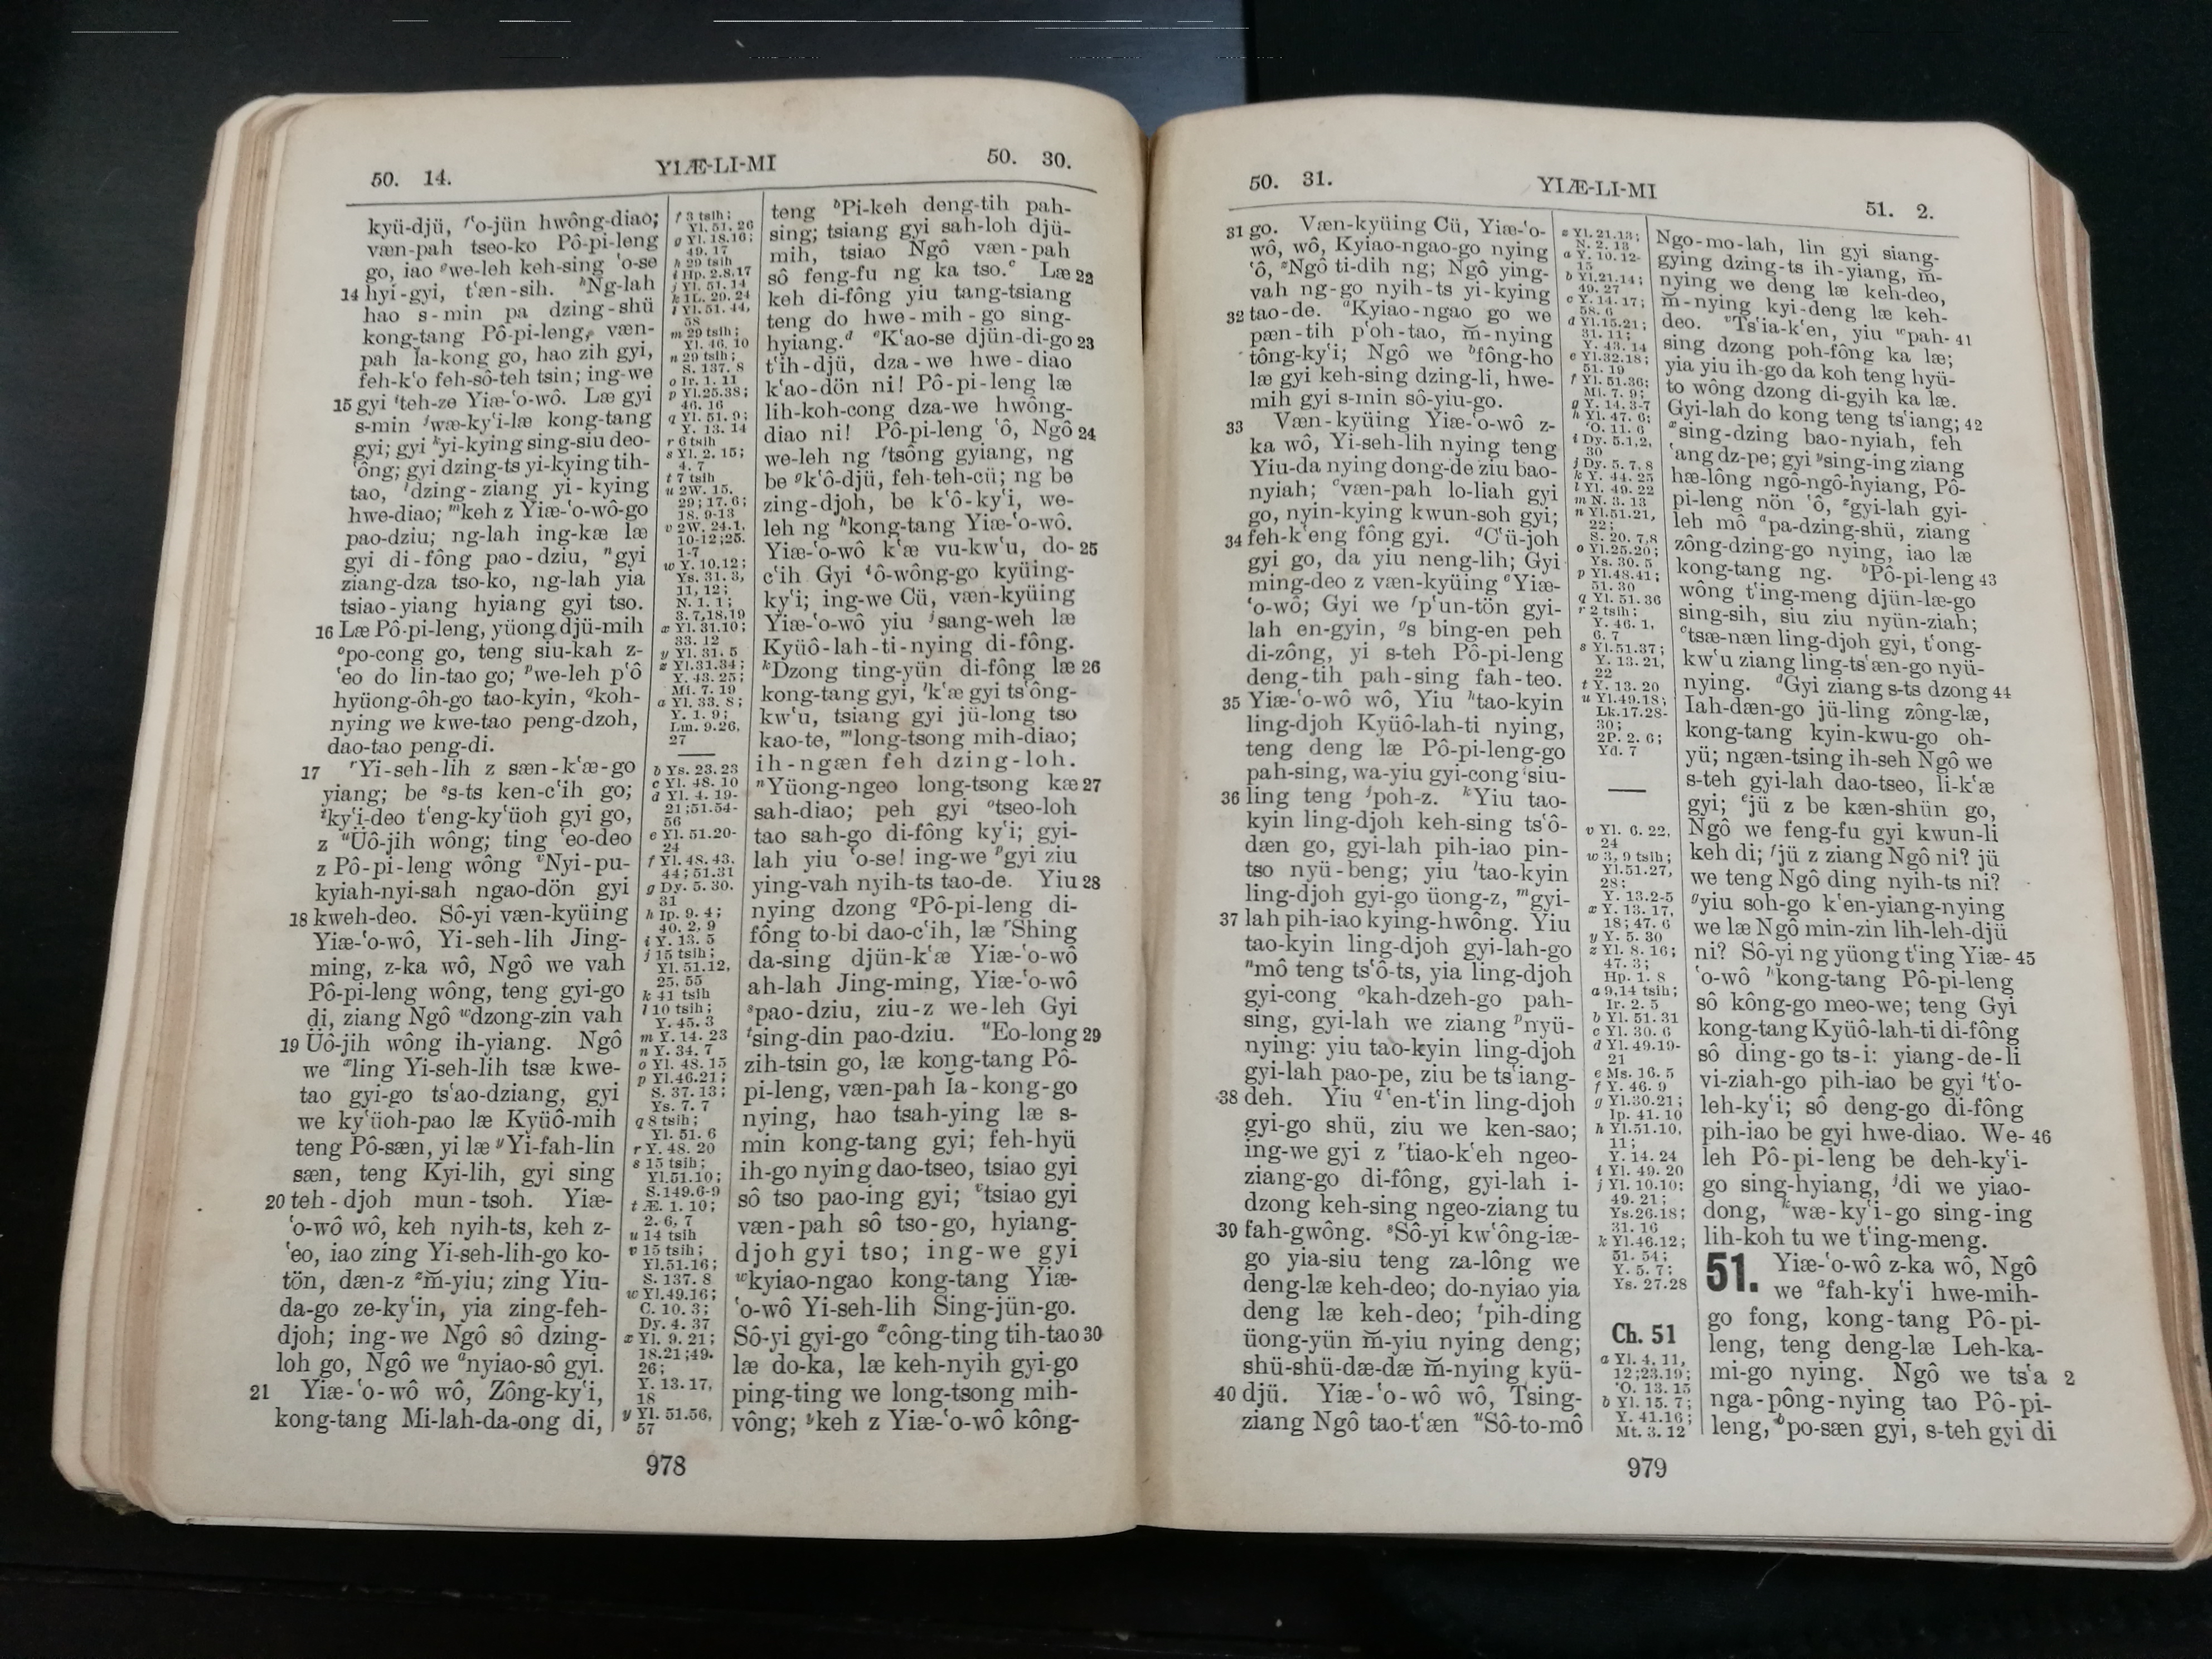 50. 14.
YIÆ-LI-MI
50. 30.
kyü-djü, fʽo-jün hwông-diao;
væn-pah tseo-ko Pô-pi-leng
go, iao gwe-leh keh-sing ʽo-se
14 hyi-gyi, tʽæn-sih. hNg-lah
hao s-min pa dzing-shü
kong-tang Pô-pi-leng, væn-
pah Ĭa-kong go, hao zih gyi,
feh-kʽo feh-sô-teh tsin; ing-we
15 gyi iteh-ze Yiæ-ʽo-wô. Læ gyi
s-min jwæ-kyʽi-læ kong-tang
gyi; gyi kyi-kying sing-siu deo-
ʽông; gyi dzing-ts yi-kying tih-
tao, ldzing-ziang yi-kying
hwe-diao; mkeh z Yiæ-ʽo-wô-go
pao-dziu; ng-lah ing-kæ læ
gyi di-fông pao-dziu, ngyi
ziang-dza tso-ko, ng-lah yia
tsiao-yiang hyiang gyi tso.
16 Læ Pô-pi-leng, yüong djü-mih
opo-cong go, teng siu-kah z-
ʽeo do lin-tao go; pwe-leh pʽô
hyüong-ôh-go tao-kyin, qkoh-
nying we kwe-tao peng-dzoh,
dao-tao peng-di.
17 rYi-seh-lih z sæn-kʽæ-go
yiang; be ss-ts ken-cʽih go;
tkyʽi-deo tʽeng-kyʽüoh gyi go,
z uÜô-jih wông; ting ʽeo-deo
z Pô-pi-leng wông vNyi-pu-
kyiah-nyi-sah ngao-dön gyi
18 kweh-deo. Sô-yi væn-kyüing
Yiæ-ʽo-wô, Yi-seh-lih Jing-
ming, z-ka wô, Ngô we vah
Pô-pi-leng wông, teng gyi-go
di, ziang Ngô wdzong-zin vah
19 Üô-jih wông ih-yiang. Ngô
we xling Yi-seh-lih tsæ kwe-
tao gyi-go tsʽao-dziang, gyi
we kyʽüoh-pao læ Kyüô-mih
teng Pô-sæn, yi læ yYi-fah-lin
sæn, teng Kyi-lih, gyi sing
20 teh-djoh mun-tsoh. Yiæ-
ʽo-wô wô, keh nyih-ts, keh z-
ʽeo, iao zing Yi-seh-lih-go ko-
tön, dæn-z zm̆-yiu; zing Yiu-
da-go ze-kyʽin, yia zing-feh-
djoh; ing-we Ngô sô dzing-
loh go, Ngô we anyiao-sô gyi.
21 Yiæ-ʽo-wô wô, Zông-kyʽi,
kong-tang Mi-lah-da-ong di,
f 3 tsih;
Yl. 51. 26
g Yl. 18.16;
49. 17
h 29 tsih
i Hp. 2.8,17
j Yl. 51. 14
k IL. 29. 24
l Yl. 51. 44,
58
m 29 tsih;
Yl. 46. 10
n 29 tsih;
S. 137. 8
o Ir. 1. 11
p Yl.25.38;
46. 16
q Yl. 51. 9;
Y. 13. 14
r 6 tsih
s Yl. 2. 15;
4. 7
t 7 tsih
u 2W. 15.
29; 17.6;
18. 9-13
v 2W. 24.1,
10-12;25.
1-7
w Y. 10.12;
Ys. 31. 3,
11, 12;
N. 1. 1;
3. 7,18,19
x Yl. 31.10;
33. 12
y Yl. 31. 5
z Yl.31.34;
Y. 43. 25;
Mi. 7. 19
a Yl. 33. 8;
Y. 1. 9;
Lm. 9.26,
27
b Ys. 23. 23
c Yl. 48. 10
d Yl. 4. 19-
21;51.54-
56
e Yl. 51.20-
24
f Yl. 48. 43,
44; 51.31
g Dy. 5. 30,
31
h Ip. 9. 4;
40. 2, 9
i Y. 13. 5
j 15 tsih;
Yl. 51.12,
25, 55
k 41 tsih
l 10 tsih;
Y. 45. 3
m Y. 14. 23
n Y. 34. 7
o Yl. 48. 15
p Yl.46.21;
S. 37. 13;
Ys. 7. 7
q 8 tsih;
Yl. 51. 6
r Y. 48. 20
s 15 tsih;
Yl.51.10;
S.149.6-9
t Æ. 1. 10;
2. 6, 7
u 14 tsih
v 15 tsih;
Yl.51.16;
S. 137. 8
w Yl.49.16;
C. 10. 3;
Dy. 4. 37
x Yl. 9. 21;
18.21;49.
26;
Y. 13. 17,
18
y Yl. 51.56,
57
teng bPi-keh deng-tih pah-
sing; tsiang gyi sah-loh djü-
mih, tsiao Ngô væn-pah
sô feng-fu ng ka tso.c Læ 22
keh di-fông yiu tang-tsiang
teng do hwe-mih-go sing-
hyiang.d eKʽao-se djün-di-go 23
tʽih-djü, dza-we hwe-diao
kʽao-dön ni! Pô-pi-leng læ
lih-koh-cong dza-we hwông-
diao ni! Pô-pi-leng ʽô, Ngô 24
we-leh ng ftsông gyiang, ng
be gkʽô-djü, feh-teh-cü; ng be
zing-djoh, be kʽô-kyʽi, we-
leh ng hkong-tang Yiæ-ʽo-wô.
Yiæ-ʽo-wô kʽæ vu-kwʽu, do- 25
cʽih Gyi iô-wông-go kyüing-
kyʽi; ing-we Cü, væn-kyüing
Yiæ-ʽo-wô yiu jsang-weh læ
Kyüô-lah-ti-nying di-fông.
kDzong ting-yün di-fông læ 26
kong-tang gyi, lkʽæ gyi tsʽông-
kwʽu, tsiang gyi jü-long tso
kao-te, mlong-tsong mih-diao;
ih-ngæn feh dzing-loh.
nYüong-ngeo long-tsong kæ 27
sah-diao; peh gyi otseo-loh
tao sah-go di-fông kyʽi; gyi-
lah yiu ʽo-se! ing-we pgyi ziu
ying-vah nyih-ts tao-de. Yiu 28
nying dzong qPô-pi-leng di-
fông to-bi dao-cʽih, læ rShing
da-sing djün-kʽæ Yiæ-ʽo-wô
ah-lah Jing-ming, Yiæ-ʽo-wô
spao-dziu, ziu-z we-leh Gyi
tsing-din pao-dziu. uEo-long 29
zih-tsin go, læ kong-tang Pô-
pi-leng, væn-pah Ĭa-kong-go
nying, hao tsah-ying læ s-
min kong-tang gyi; feh-hyü
ih-go nying dao-tseo, tsiao gyi
sô tso pao-ing gyi; vtsiao gyi
væn-pah sô tso-go, hyiang-
djoh gyi tso; ing-we gyi
wkyiao-ngao kong-tang Yiæ-
ʽo-wô Yi-seh-lih Sing-jün-go.
Sô-yi gyi-go xcông-ting tih-tao 30
læ do-ka, læ keh-nyih gyi-go
ping-ting we long-tsong mih-
vông; ykeh z Yiæ-ʽo-wô kông-
978
50. 31.
YIÆ-LI-MI
51. 2.
31 go. Væn-kyüing Cü, Yiæ-ʽo-
wô, wô, Kyiao-ngao-go nying
ʽô, zNgô ti-dih ng; Ngô ying-
vah ng-go nyih-ts yi-kying
32 tao-de. aKyiao-ngao go we
pæn-tih pʽoh-tao, m̆-nying
tông-kyʽi; Ngô we bfông-ho
læ gyi keh-sing dzing-li, hwe-
mih gyi s-min sô-yiu-go.
33 Væn-kyüing Yiæ-ʽo-wô z-
ka wô, Yi-seh-lih nying teng
Yiu-da nying dong-de ziu bao-
nyiah; cvæn-pah lo-liah gyi
go, nyin-kying kwun-soh gyi;
34 feh-kʽeng fông gyi. dCʽü-joh
gyi go, da yiu neng-lih; Gyi
ming-deo z væn-kyüing eYiæ-
ʽo-wô; Gyi we fpʽun-tön gyi-
lah en-gyin, gs bing-en peh
di-zông, yi s-teh Pô-pi-leng
deng-tih pah-sing fah-teo.
35 Yiæ-ʽo-wô wô, Yiu htao-kyin
ling-djoh Kyüô-lah-ti nying,
teng deng læ Pô-pi-leng-go
pah-sing, wa-yiu gyi-cong isiu-
36 ling teng jpoh-z. kYiu tao-
kyin ling-djoh keh-sing tsʽô-
dæn go, gyi-lah pih-iao pin-
tso nyü-beng; yiu ltao-kyin
ling-djoh gyi-go üong-z, mgyi-
37 lah pih-iao kying-hwông. Yiu
tao-kyin ling-djoh gyi-lah-go
nmô teng tsʽô-ts, yia ling-djoh
gyi-cong okah-dzeh-go pah-
sing, gyi-lah we ziang pnyü-
nying: yiu tao-kyin ling-djoh
gyi-lah pao-pe, ziu be tsʽiang-
38 deh. Yiu qʽen-tʽin ling-djoh
gyi-go shü, ziu we ken-sao;
ing-we gyi z rtiao-kʽeh ngeo-
ziang-go di-fông, gyi-lah i-
dzong keh-sing ngeo-ziang tu
39 fah-gwông. sSô-yi kwʽông-iæ-
go yia-siu teng za-lông we
deng-læ keh-deo; do-nyiao yia
deng læ keh-deo; tpih-ding
üong-yün m̆-yiu nying deng;
shü-shü-dæ-dæ m̆-nying kyü-
40 djü. Yiæ-ʽo-wô wô, Tsing-
ziang Ngô tao-tʽæn uSô-to-mô
z Yl. 21.13;
N. 2. 13
a Y. 10. 12-
15
b Yl.21.14;
49. 27
c Y. 14. 17;
58. 6
d Yl.15.21;
31. 11;
Y. 43. 14
e Yl.32.18;
51. 19
f Yl. 51.36;
Mi. 7. 9;
g Y. 14. 3-7
h Yl. 47. 6;
ʽO. 11. 6
i Dy. 5.1,2,
30
j Dy. 5. 7, 8
k Y. 44. 25
l Yl. 49. 22
m N. 3. 13
n Yl.51.21,
22;
S. 20. 7,8
o Yl.25.20;
Ys. 30. 5
p Yl.48.41;
51. 30
q Yl. 51. 36
r 2 tsih;
Y. 46. 1,
6, 7
s Yl.51.37;
Y. 13. 21,
22
t Y. 13. 20
u Yl.49.18;
Lk.17.28-
30;
2P. 2. 6;
Yd. 7
v Yl. 6. 22,
24
w 3, 9 tsih;
Yl.51.27,
28;
Y. 13.2-5
x Y. 13. 17,
18; 47. 6
y Y. 5. 30
z Yl. 8. 16;
47. 3;
Hp. 1. 8
a 9,14 tsih;
Ir. 2. 5
b Yl. 51. 31
c Yl. 30. 6
d Yl. 49.19-
21
e Ms. 16. 5
f Y. 46. 9
g Yl.30.21;
Ip. 41. 10
h Yl.51.10,
11;
Y. 14. 24
i Yl. 49. 20
j Yl. 10.10;
49. 21;
Ys.26.18;
31. 16
k Yl.46.12;
51. 54;
Y. 5. 7;
Ys. 27.28
Ch. 51
a Yl. 4. 11,
12;23.19;
ʽO. 13. 15
b Yl. 15. 7;
Y. 41.16;
Mt. 3. 12
Ngo-mo-lah, lin gyi siang-
gying dzing-ts ih-yiang, m̆-
nying we deng læ keh-deo,
m̆-nying kyi-deng læ keh-
deo. vTsʽia-kʽen, yiu wpah- 41
sing dzong poh-fông ka læ;
yia yiu ih-go da koh teng hyü-
to wông dzong di-gyih ka læ.
Gyi-lah do kong teng tsʽiang; 42
xsing-dzing bao-nyiah, feh
ʽang dz-pe; gyi ysing-ing ziang
hæ-lông ngô-ngô-hyiang, Pô-
pi-leng nön ʽô, zgyi-lah gyi-
leh mô apa-dzing-shü, ziang
zông-dzing-go nying, iao læ
kong-tang ng. bPô-pi-leng 43
wông tʽing-meng djün-læ-go
sing-sih, siu ziu nyün-ziah;
ctsæ-næn ling-djoh gyi, tʽong-
kwʽu ziang ling-tsʽæn-go nyü-
nying. dGyi ziang s-ts dzong 44
Iah-dæn-go jü-ling zông-læ,
kong-tang kyin-kwu-go oh-
yü; ngæn-tsing ih-seh Ngô we
s-teh gyi-lah dao-tseo, li-kʽæ
gyi; ejü z be kæn-shün go,
Ngô we feng-fu gyi kwun-li
keh di; fjü z ziang Ngô ni? jü
we teng Ngô ding nyih-ts ni?
gyiu soh-go kʽen-yiang-nying
we læ Ngô min-zin lih-leh-djü
ni? Sô-yi ng yüong tʽing Yiæ- 45
ʽo-wô hkong-tang Pô-pi-leng
sô kông-go meo-we; teng Gyi
kong-tang Kyüô-lah-ti di-fông
sô ding-go ts-i: yiang-de-li
vi-ziah-go pih-iao be gyi itʽo-
leh-kyʽi; sô deng-go di-fông
pih-iao be gyi hwe-diao. We- 46
leh Pô-pi-leng be deh-kyʽi-
go sing-hyiang, jdi we yiao-
dong, kwæ-kyʽi-go sing-ing
lih-koh tu we tʽing-meng.
51. Yiæ-ʽo-wô z-ka wô, Ngô
we afah-kyʽi hwe-mih-
go fong, kong-tang Pô-pi-
leng, teng deng-læ Leh-ka-
mi-go nying. Ngô we tsʽa 2
nga-pông-nying tao Pô-pi-
leng, bpo-sæn gyi, s-teh gyi di
979